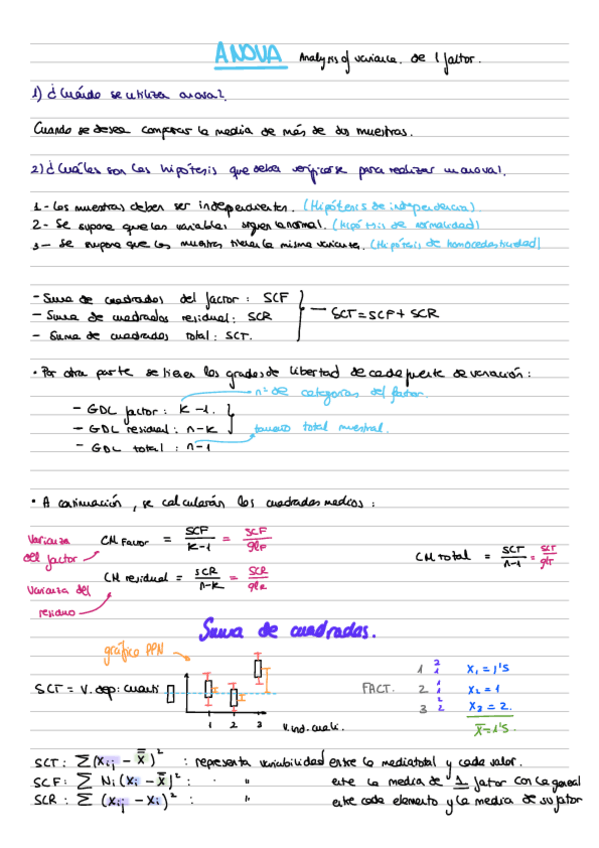 ANOVA Analysis of variance. de 1 factor.
1) ¿Cuándo se utiliza anova?
Cuando se desea comparar la media de más de dos muestras.
2) ¿Cuáles son las hipótesis que debe verificarse para realizar un anova?
1- Las muestras deben ser independientes. (Hipótesis de independencia)
2- Se supone que las variables siguen la normal. (Hipótesis de normalidad)
3- Se supone que las muestras tienen la misma varianza. (Hipótesis de homocedasticidad)
- Suma de cuadrados del factor: SCF
- Suma de cuadrados residual: SCR
- Suma de cuadrados total: SCT.
SCT = SCF + SCR
• Por otra parte se tienen los grados de libertad de cada fuente de variación:
nº de categorías del factor.
- GDL factor: k-1.
- GDL residual: n-k
tamaño total muestral.
- GDL total: n-1
• A continuación, se calcularán los cuadrados medios:
Varianza del factor
CM Factor = SCF/k-1 = SCF/glF
CM Total = SCT/n-1 = SCT/glT
CM residual = SCR/n-k = SCR/glR
Varianza del residuo
Suma de cuadrados.
gráfico PPN
SCT = V. dep: cuanti
1 2 3
V. ind. cuali.
FACT.
1 2 1 X₁ = 1'5
2 1 1 X₂ = 1
3 2 2 X₃ = 2.
X̄ = 1'5
SCT: ∑(Xij - X̿)² : representa variabilidad entre la media total y cada valor.
SCF: ∑ Ni (Xi - X̿)² : " " entre la media de 1 factor con la general
SCR: ∑ (Xij - Xi)² : " entre cada elemento y la media de su factor